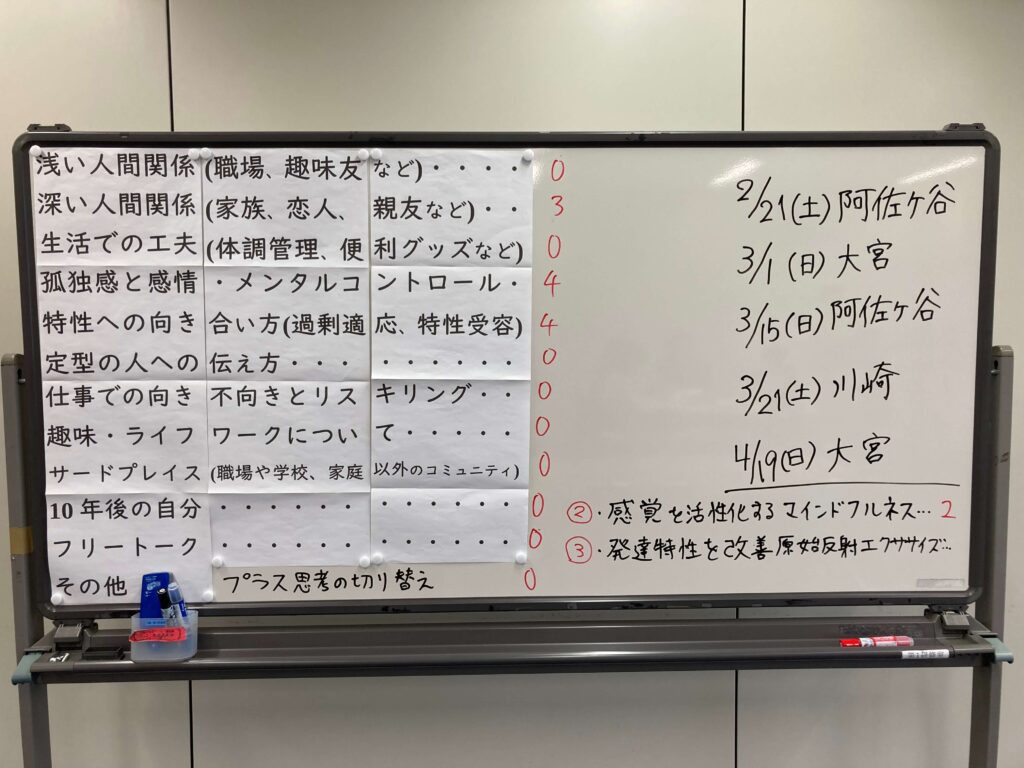 浅い人間関係(職場、趣味友など)・・・・ 0
深い人間関係(家族、恋人、親友など)・・ 3
生活での工夫(体調管理、便利グッズなど) 0
孤独感と感情・メンタルコントロール・ 4
特性への向き合い方(過剰適応、特性受容) 4
定型の人への伝え方・・・・・・・・・ 0
仕事での向き不向きとリスキリング・・ 0
趣味・ライフワークについて・・・・・ 0
サードプレイス(職場や学校、家庭以外のコミュニティ) 0
10年後の自分・・・・・・・・・・・・ 0
フリートーク・・・・・・・・・・・・ 0
その他 プラス思考の切り替え 0
2/21(土)阿佐ケ谷
3/1(日)大宮
3/15(日)阿佐ケ谷
3/21(土)川崎
4/19(日)大宮
②・感覚を活性化するマインドフルネス…2
③・発達特性を改善原始反射エクササイズ…